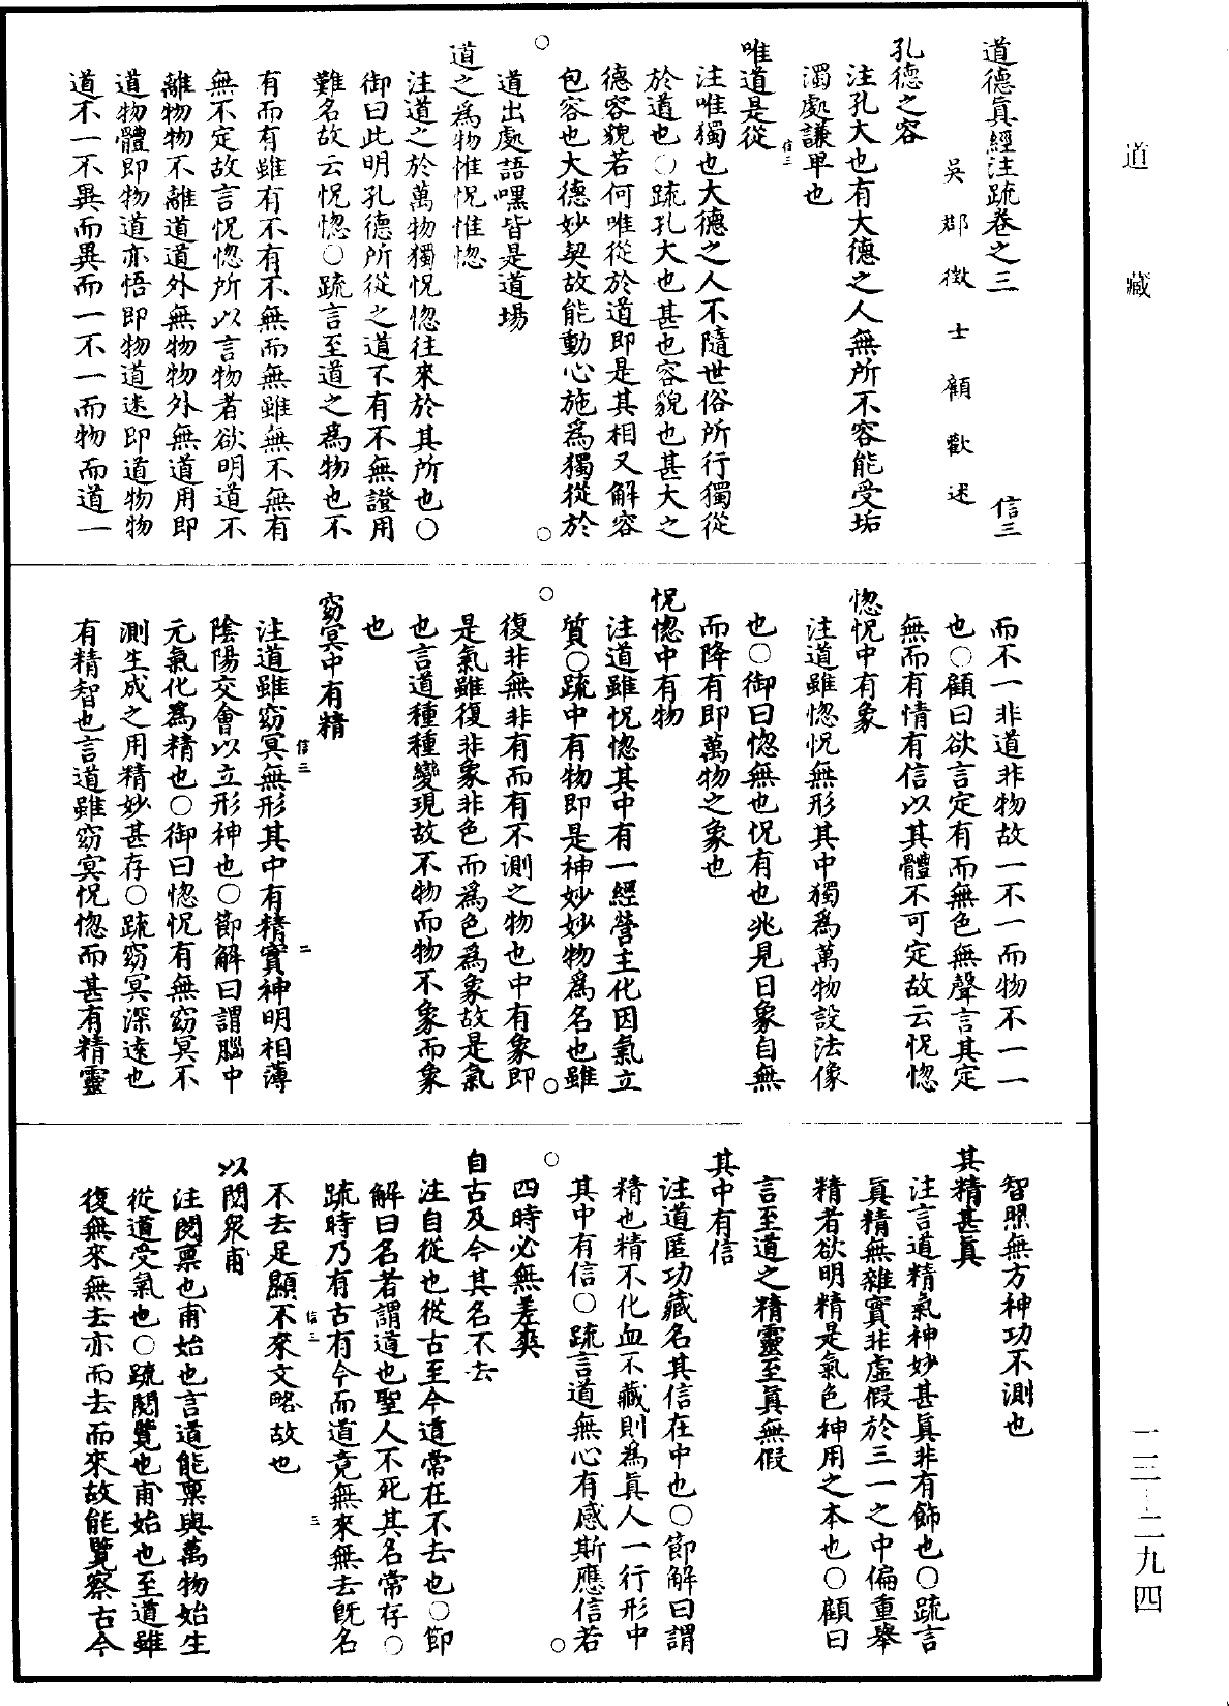 道德真經注疏卷之三 信三
吳郡徵士顧歡述
孔德之容
注孔大也有大德之人無所不容能受垢
濁處謙卑也
唯道是從
信三
注唯獨也大德之人不隨世俗所行獨從
於道也○疏孔大也甚也容貌也甚大之
德容貌若何唯從於道即是其相又解容
包容也大德妙契故能動心施為獨從於
道出處語嘿皆是道場
道之為物惟恍惟惚
注道之於萬物獨恍惚往來於其所也○
御曰此明孔德所從之道不有不無證用
難名故云恍惚○疏言至道之為物也不
有而有雖有不有不無而無雖無不無有
無不定故言恍惚所以言物者欲明道不
離物物不離道道外無物物外無道用即
道物體即物道亦悟即物道迷即道物物
道不一不異而異而一不一而物而道一
而不一非道非物故一不一而物不一一
也○顧曰欲言定有而無色無聲言其定
無而有情有信以其體不可定故云恍惚
惚恍中有象
注道雖惚恍無形其中獨為萬物設法像
也○御曰惚無也恍有也兆見曰象自無
而降有即萬物之象也
恍惚中有物
注道雖恍惚其中有一經營主化因氣立
質○疏中有物即是神妙妙物為名也雖
復非無非有而有不測之物也中有象即
是氣雖復非象非色而為色為象故是氣
也言道種種變現故不物而物不象而象
也
窈冥中有精
信三 二
注道雖窈冥無形其中有精實神明相薄
陰陽交會以立形神也○節解曰謂腦中
元氣化為精也○御曰惚恍有無窈冥不
測生成之用精妙甚存○疏窈冥深遠也
有精智也言道雖窈冥恍惚而甚有精靈
智照無方神功不測也
其精甚真
注言道精氣神妙甚真非有飾也○疏言
真精無雜實非虛假於三一之中偏重舉
精者欲明精是氣色神用之本也○顧曰
言至道之精靈至真無假
其中有信
注道匿功藏名其信在中也○節解曰謂
精也精不化血不藏則為真人一行形中
其中有信○疏言道無心有感斯應信若
四時必無差爽
自古及今其名不去
注自從也從古至今道常在不去也○節
解曰名者謂道也聖人不死其名常存○
疏時乃有古有今而道竟無來無去既名
信三 三
不去足顯不來文略故也
以閱眾甫
注閱稟也甫始也言道能稟與萬物始生
從道受氣也○疏閱覽也甫始也至道雖
復無來無去亦而去而來故能覽察古今
道藏
一三-二九四